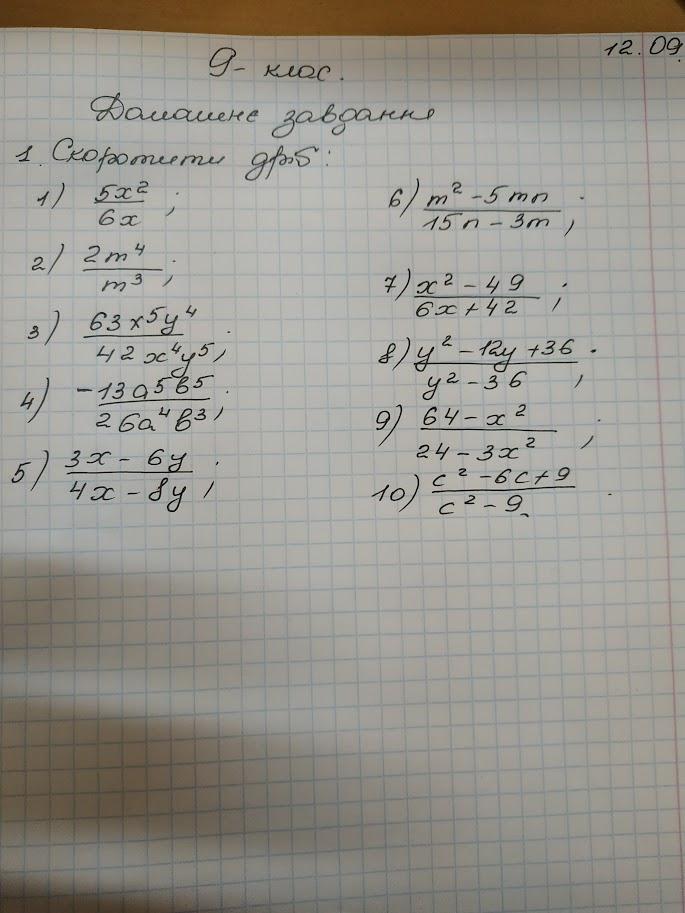 12.09.
9- клас.
Домашнє завдання
1. Скоротити дріб:
1) 5x²/6x ;
2) 2m⁴/m³ ;
3) 63x⁵y⁴/42x⁴y⁵ ;
4) -13a⁵b⁵/26a⁴b³ ;
5) 3x - 6y/4x - 8y ;
6) m² - 5mn/15n - 3m ;
7) x² - 49/6x + 42 ;
8) y² - 12y + 36/y² - 36 ;
9) 64 - x²/24 - 3x² ;
10) c² - 6c + 9/c² - 9.